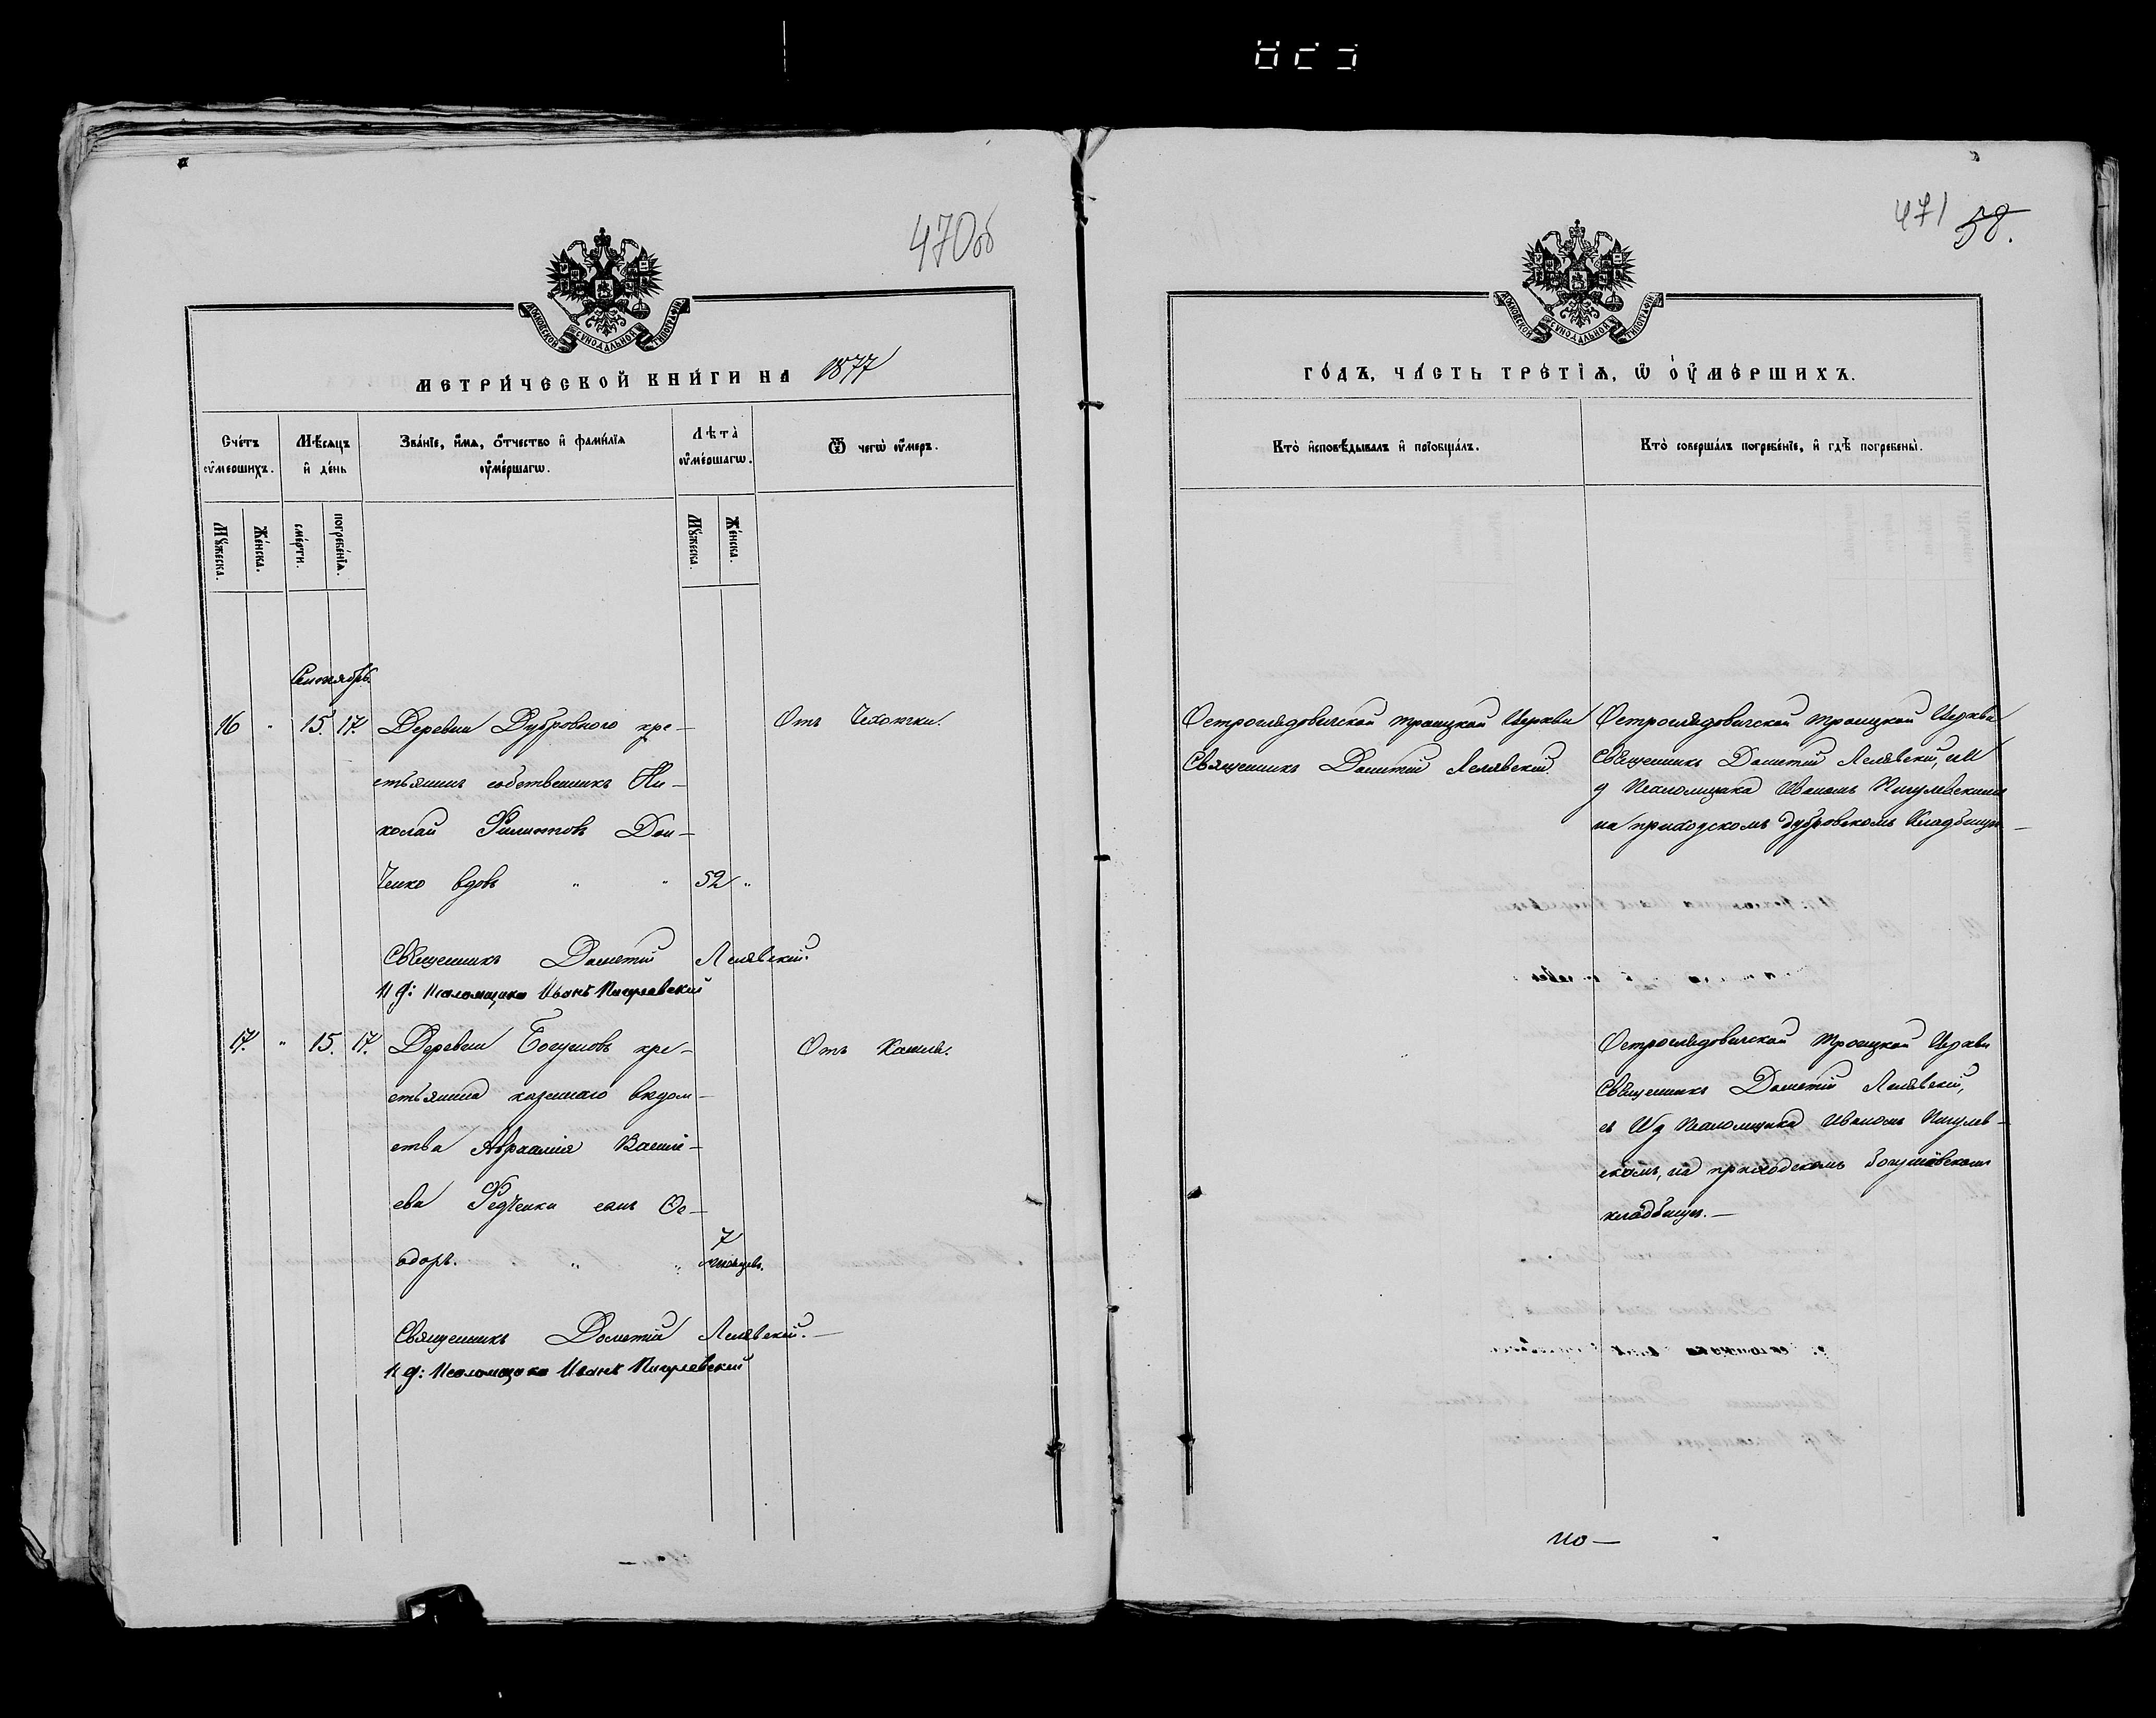 470об
МОСКОВСКОЙ СѴНОДАЛЬНОЙ ТИПОГРАФІИ
МЕТРИ́ЧЕСКОЙ КНИ́ГИ НА 1877
Сче́тъ ᲂу҆ме́ршихъ.
Мѣ́сяцъ и҆ де́нь
Зва́нїе, и҆́мѧ, ѻ҆́тчество и҆ фами́лїѧ ᲂу҆ме́ршагѡ.
Лѣта̀ ᲂу҆ме́ршагѡ.
Ѿ чегѡ̀ ᲂу҆́меръ.
Мꙋ́жеска.
Же́нска.
сме́рти.
погребе́нїѧ.
Мꙋ́жеска.
Же́нска.
Сентябрь
16 " 15. 17. Деревни Дубровного кре-
стьянинъ собственникъ Ни-
колай Филиповъ Дон-
ченко вдовъ " " 52 "
Отъ Чехотки.
Священникъ Дометій Лелявскій.
И д: Псаломщика Иванъ Пигулевскій
17. " 15. 17. Деревни Богушовъ кре-
стьянина казеннаго ведом-
ства Авраамія Василі-
ева Федченки сынъ Ѳе-
одоръ. " " 7 месяцевъ.
Отъ Кашля.
Священникъ Дометій Лелявскій.—
И д: Псаломщика Иванъ Пигулевскій
471 58.
МОСКОВСКОЙ СѴНОДАЛЬНОЙ ТИПОГРАФІИ
ГО́ДЪ, ЧА́СТЬ ТРЕ́ТЇѦ, Ѡ ОУ҆МЕ́РШИХЪ.
Кто̀ и҆сповѣ́дывалъ и҆ прїѡбща́лъ.
Кто̀ соверша́лъ погребе́нїе, и҆ гдѣ̀ погребены̀.
Остроглядовичской Троицкой Церкви
Священникъ Дометій Лелявскій
Остроглядовичской Троицкой Церкви
Священникъ Дометій Лелявскій, съ И
д Псаломщика Иваномъ Пигулевскимъ
на приходскомъ Дубровскомъ Кладбищи—
Остроглядовичской Троицкой Церкви
Священникъ Дометій Лелявскій,
съ И д Псаломщика Иваномъ Пигулев-
скимъ, на приходскомъ Богушовскомъ
кладбищи.—
по—